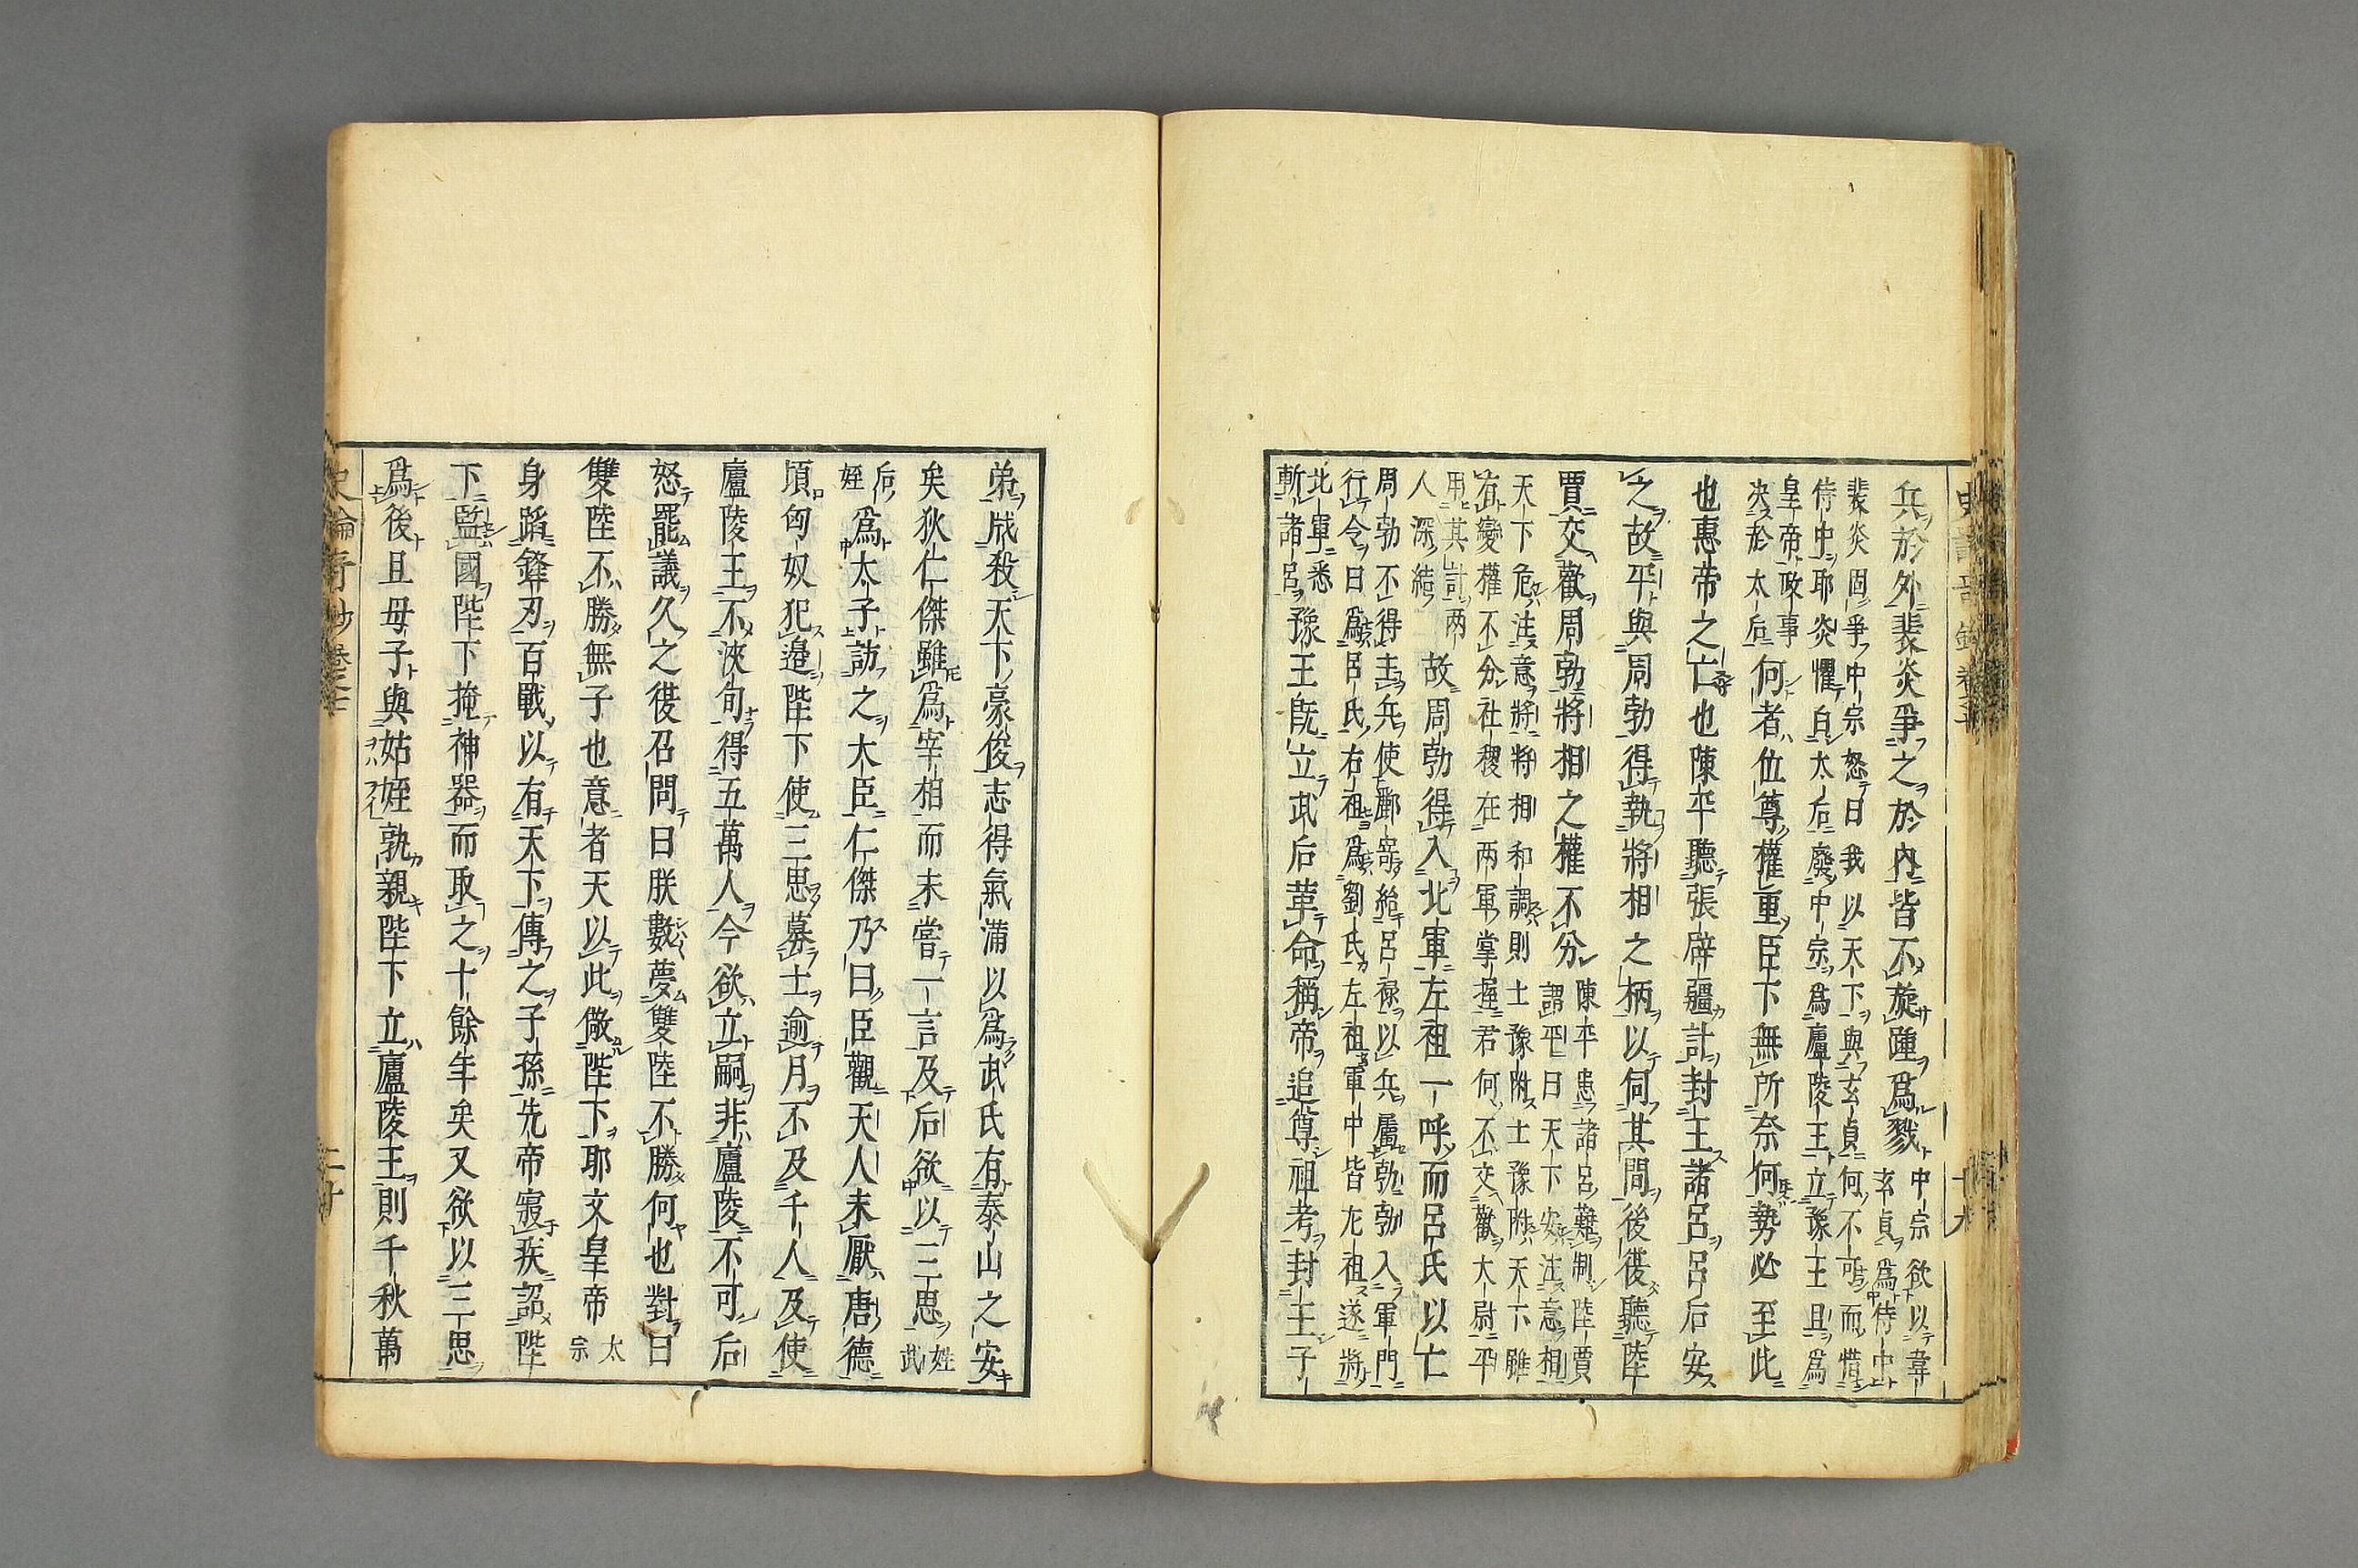 兵於外裴炎爭之於內皆不旋踵爲戮
中宗欲以韋
玄貞爲侍中
裴炎固爭中宗怒曰我以天下與玄貞何不可而惜
侍中耶炎懼白太后廢中宗爲廬陵王立豫王且爲
皇帝政事
决於太后
何者位尊權重臣下無所奈何勢必至此
也惠帝之亡也陳平聽張辟疆計封王諸呂呂后安
之故平與周勃得執將相之柄以伺其間後復聽陸
賈交歡周勃將相之權不分
陳平患諸呂難制陸賈
謂平曰天下安注意相
天下危注意將將相和調則士豫附士豫附天下雖
有變權不分社稷在兩軍掌握君何不交歡大尉平
用其計两
人深結
故周勃得入北軍左袒一呼而呂氏以亡
周勃不得主兵使酈寄紿呂禄以兵屬勃勃入軍門
行令曰爲呂氏右袒爲劉氏左袒軍中皆左袒遂將
北軍悉
斬諸呂
豫王旣立武后革命稱帝追尊祖考封王子
弟戕殺天下豪俊志得氣滿以爲武氏有泰山之安
矣狄仁傑雖爲宰相而未嘗一言及后欲以三思
武
姪
后
姪
爲太子訪之大臣仁傑乃曰臣觀天人未厭唐德
頃匈奴犯邊陛下使三思募士逾月不及千人及使
廬陵王不浹旬得五萬人今欲立嗣非廬陵不可后
怒罷議久之復召問曰朕數夢雙陸不勝何也對曰
雙陸不勝無子也意者天以此儆陛下耶文皇帝
太
宗
身蹈鋒刃百戰以有天下傳之子孫先帝寢疾詔陛
下監國陛下掩神器而取之十餘年矣又欲以三思
爲後且母子與姑姪孰親陛下立廬陵王則千秋萬
史論奇鈔